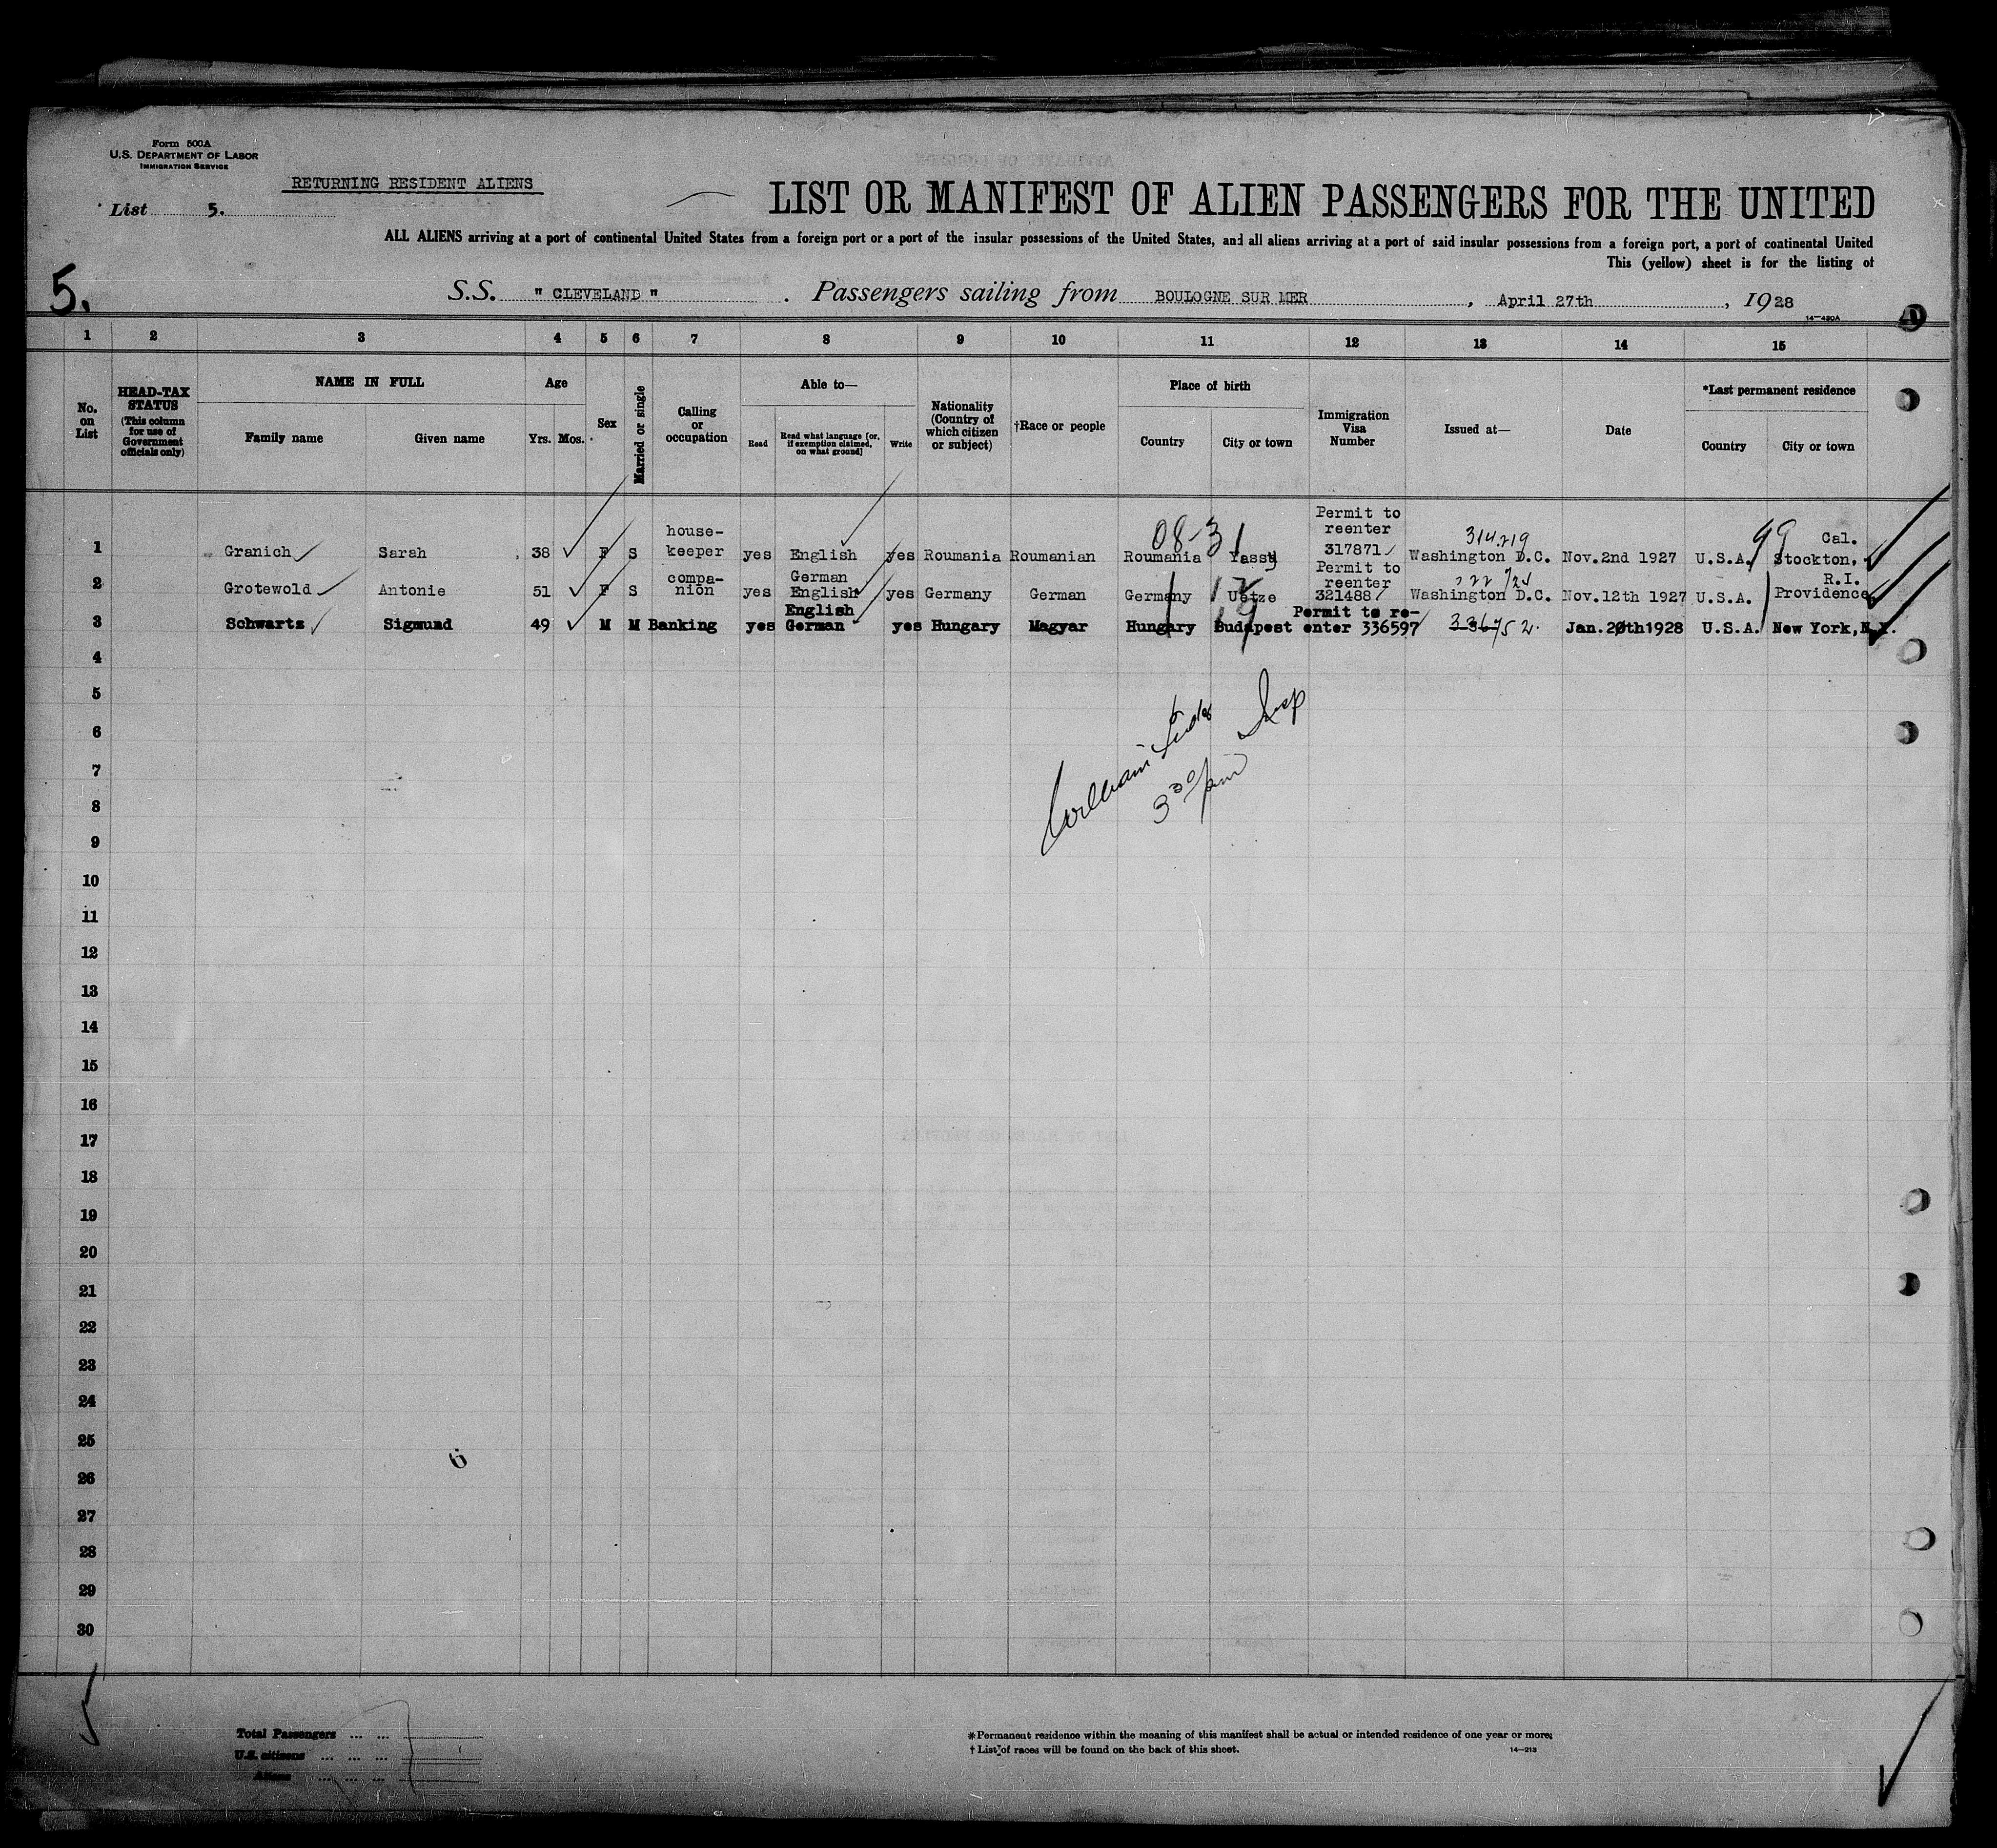 Form 500A
U.S. DEPARTMENT OF LABOR
IMMIGRATION SERVICE
RETURNING RESIDENT ALIENS
List 5.
LIST OR MANIFEST OF ALIEN PASSENGERS FOR THE UNITED
ALL ALIENS arriving at a port of continental United States from a foreign port or a port of the insular possessions of the United States, and all aliens arriving at a port of said insular possessions from a foreign port, a port of continental United
This (yellow) sheet is for the listing of
5.
S.S. " CLEVELAND " . Passengers sailing from BOULOGNE SUR MER , April 27th , 1928
14—430A
1 2 3 4 5 6 7 8 9 10 11 12 13 14 15
No. on List
HEAD-TAX STATUS
(This column for use of Government officials only)
NAME IN FULL
Family name Given name
Age
Yrs. Mos.
Sex
Married or single
Calling or occupation
Able to—
Read
Read what language [or, if exemption claimed, on what ground]
Write
Nationality (Country of which citizen or subject)
†Race or people
Place of birth
Country City or town
Immigration Visa Number
Issued at—
Date
*Last permanent residence
Country City or town
1 Granich Sarah 38 F S house-keeper yes English yes Roumania Roumanian Roumania Yassy Permit to reenter 317871 Washington D.C. Nov.2nd 1927 U.S.A. Cal. Stockton,
08-31 314219 99
2 Grotewold Antonie 51 F S compa-nion yes German English yes Germany German Germany Uetze Permit to reenter 321488 Washington D.C. Nov.12th 1927 U.S.A. R.I. Providence
3 Schwartz Sigmund 49 M M Banking yes English German yes Hungary Magyar Hungary Budapest Permit to re-enter 336597 Jan.20th1928 U.S.A. New York, N.Y.
4
5
6
William Insp
7
3 30 pm
8
9
10
11
12
13
14
15
16
17
18
19
20
21
22
23
24
25
6
26
27
28
29
30
Total Passengers ... ...
U.S. citizens ... ... ...
Aliens ... ... ...
*Permanent residence within the meaning of this manifest shall be actual or intended residence of one year or more.
† List of races will be found on the back of this sheet.
14—213